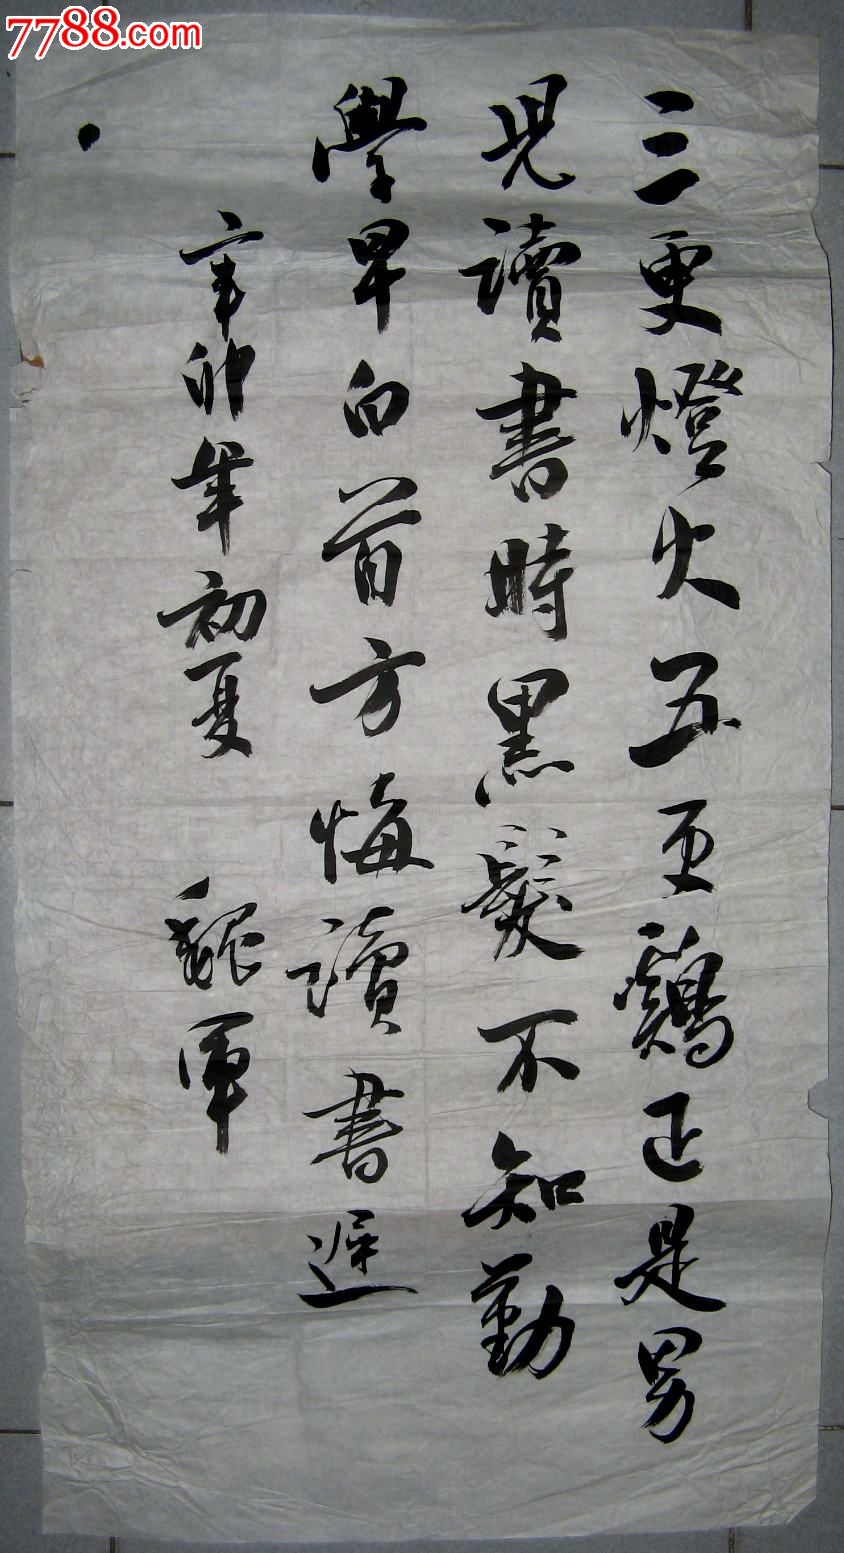 7788.com
三更燈火五更鷄正是男
児讀書時黑髮不知勤
學早白首方悔讀書遲
辛卯年初夏 魏軍